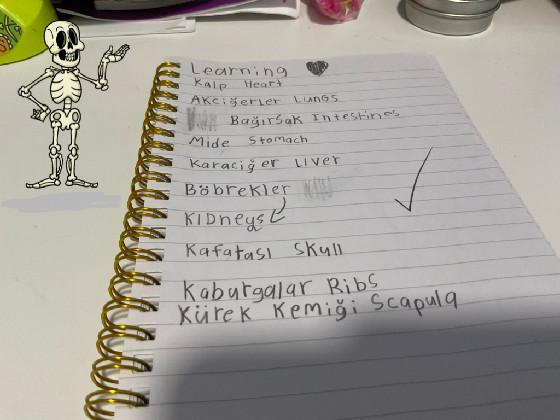 Learning
Kalp Heart
Akciğerler Lungs
Bağırsak Intestines
Mide Stomach
Karaciğer Liver
Böbrekler
Kidneys
Kafatası Skull
Kaburgalar Ribs
Kürek Kemiği Scapula